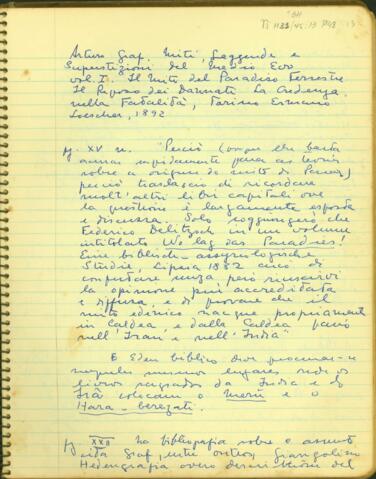 Arturo Graf. Miti, Leggende e
Superstizioni del Medio Evo
vol. I. Il Mito del Paradiso Terrestre
Il Riposo dei Dannati La Credenza
nella Fatalità, Torino Ermanno
Loescher, 1892
p. XV n.
sobre a origem do mito do
perciò tralascio di ricordare
molt'altri libri capitali ove
la questione è largamente esposta
e discussa. Solo soggiungerò che
Federico Delitzsch in un volume
intitolato Wo lag das Paradies?
Eine biblisch-assyriologische
Studie, Lipsia 1882 cercò di
confutare senza però riuscirvi
la opinione più accreditata
e diffusa, e di provare che il
mito edenico nacque propriamente
in Caldea, e dalla Caldea passò
nell'Iran e nell'India"
O Eden biblico deve procurar-se
naqueles mesmos lugares onde os
livros sagrados da India e do
Irã colocam o Meru e o
Hara-berezati.
p. XXII na bibliografia sobre o assunto
cita Graf, entre outros, Giangolino
Hedengrafia overo descrizione del